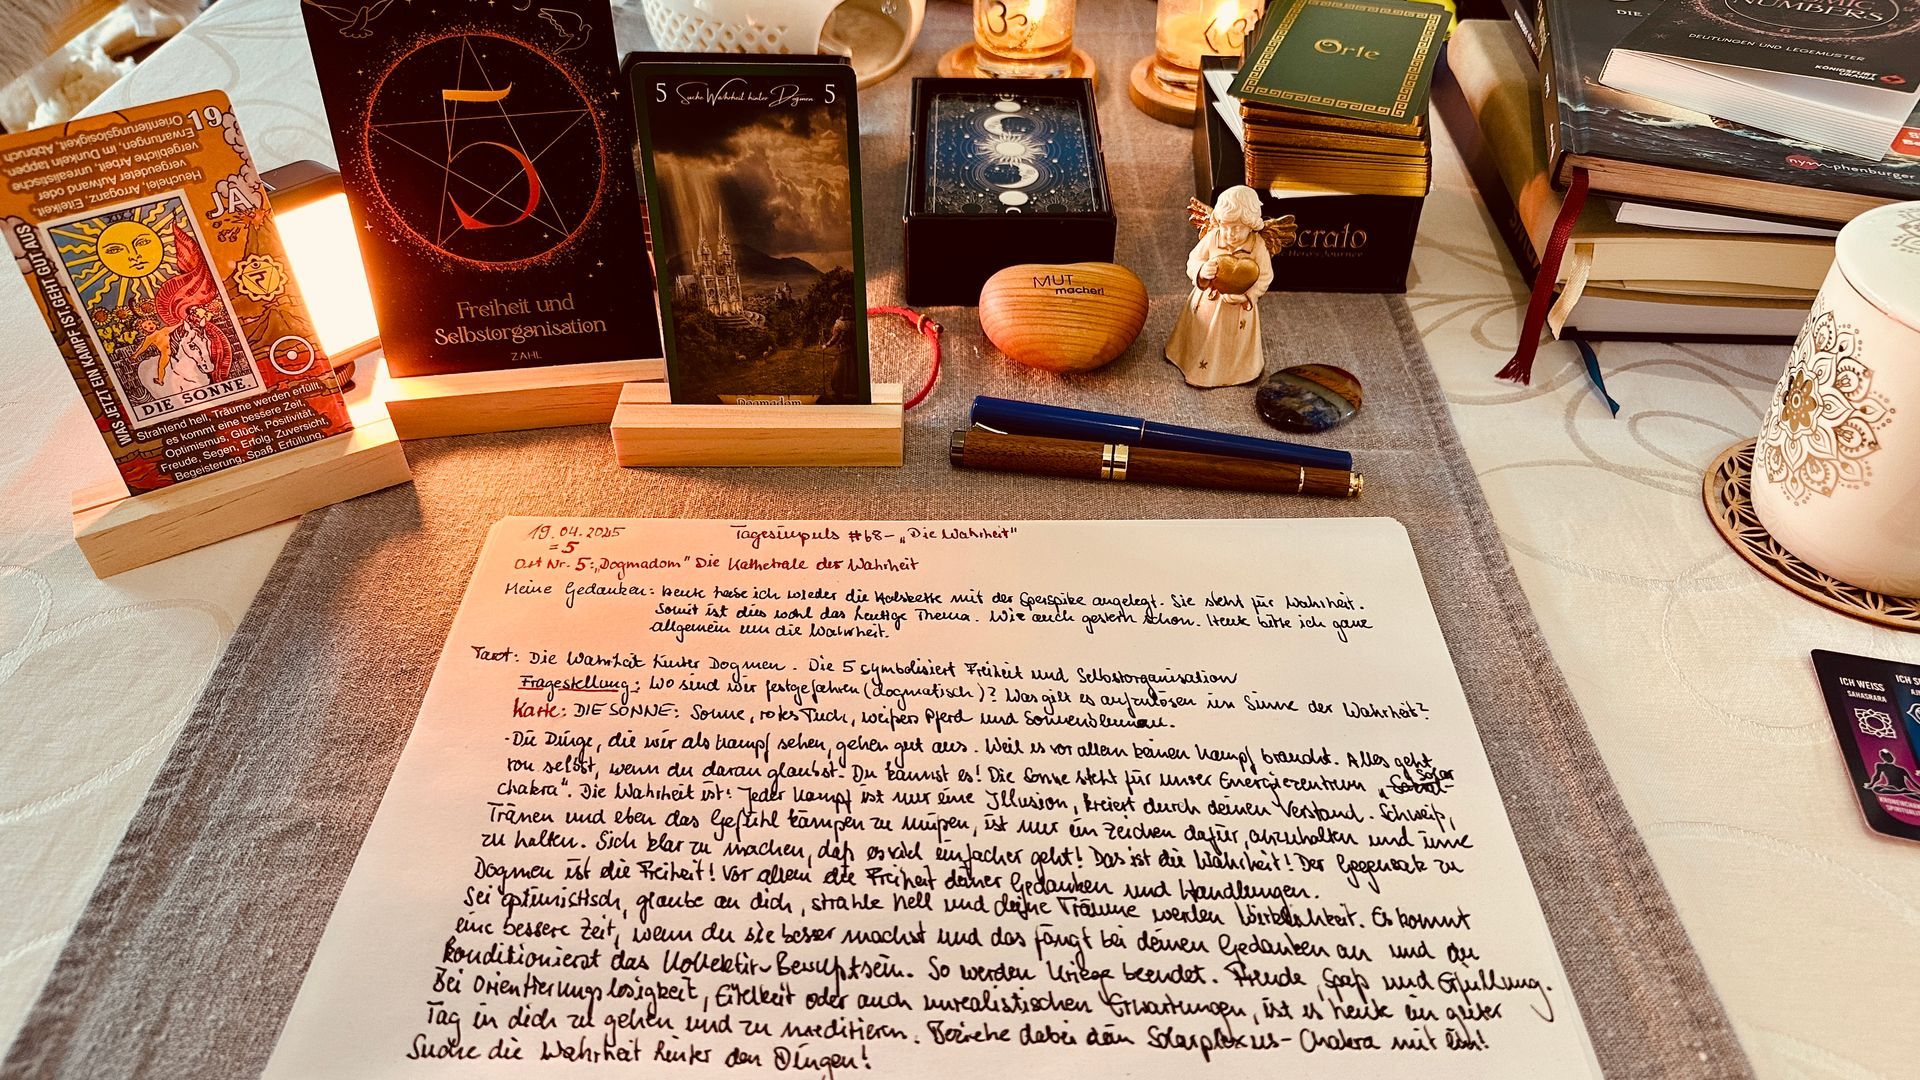 19
JA
Heuchelei, Arroganz, Eitelkeit,
vergeudeter Aufwand oder
vergebliche Arbeit, unrealistische
Erwartungen, im Dunkeln tappen,
Orientierungslosigkeit, Abbruch
WAS JETZT EIN KAMPF IST GEHT GUT AUS
DIE SONNE.
Strahlend hell, Träume werden erfüllt,
es kommt eine bessere Zeit,
Optimismus, Glück, Positivität,
Freude, Segen, Erfolg, Zuversicht,
Begeisterung, Spaß, Erfüllung,
5
Freiheit und
Selbstorganisation
ZAHL
5 Suche Wahrheit hinter Dogmen 5
Dogmadom
MUT
macherl
Orte
Scrato
Hero's Journey
NUMBERS
DEUTUNGEN UND LEGEMUSTER
KÖNIGSFURT
URANIA
DIE
nymphenburger
ICH WEISS
SAHASRARA
19.04.2025
= 5
Tagesimpuls #68 - „Die Wahrheit"
Ort Nr. 5: „Dogmadom" Die Kathetrale der Wahrheit
Meine Gedanken: Heute habe ich wieder die Halskette mit der angelegt. Sie steht für Wahrheit.
Somit ist dies wohl das heutige Thema. Wie auch gestern schon. Heute bitte ich ganz
allgemein um die Wahrheit.
Tarot: Die Wahrheit hinter Dogmen. Die 5 symbolisiert Freiheit und Selbstorganisation
Fragestellung: Wo sind wir festgefahren (dogmatisch)? Was gilt es aufzulösen im Sinne der Wahrheit?
Karte: DIE SONNE: Sonne, rotes Tuch, weißes Pferd und Sonnenblumen.
- Die Dinge, die wir als Kampf sehen, gehen gut aus. Weil es vor allem keinen Kampf braucht. Alles geht
von selbst, wenn du daran glaubst. Du kannst es! Die Sonne steht für unser Energiezentrum „Solar
chakra". Die Wahrheit ist: Jeder Kampf ist nur eine Illusion, kreiert durch deinen Verstand. Schweiß,
Tränen und eben das Gefühl kämpfen zu müssen, ist nur ein Zeichen dafür, anzuhalten und inne
zu halten. Sich klar zu machen, daß es viel einfacher geht! Das ist die Wahrheit! Der Gegensatz zu
Dogmen ist die Freiheit! Vor allem die Freiheit deiner Gedanken und Handlungen.
Sei optimistisch, glaube an dich, strahle hell und deine Träume werden Wirklichkeit. Es kommt
eine bessere Zeit, wenn du sie besser machst und das fängt bei deinen Gedanken an und du
konditionierst das Kollektiv-Bewußtsein. So werden Kriege beendet. Freude, Spaß und Erfüllung.
Bei Orientierungslosigkeit, Eitelkeit oder auch unrealistischen Erwartungen, ist es heute ein guter
Tag in dich zu gehen und zu meditieren. Beziehe dabei dein Solarplexus-Chakra mit ein!
Suche die Wahrheit hinter den Dingen!